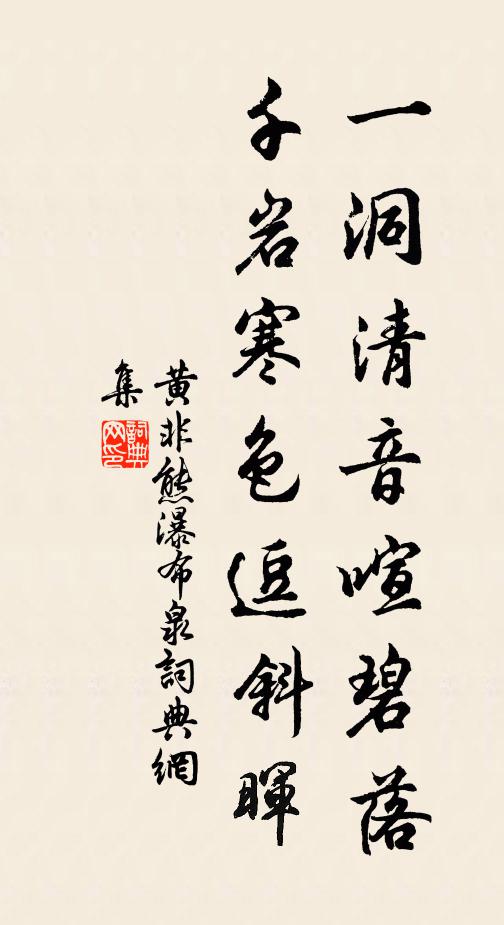 一洞清音喧碧落
千岩寒色逗斜暉
黄非熊瀑布泉詞典網
集
詞典
网印